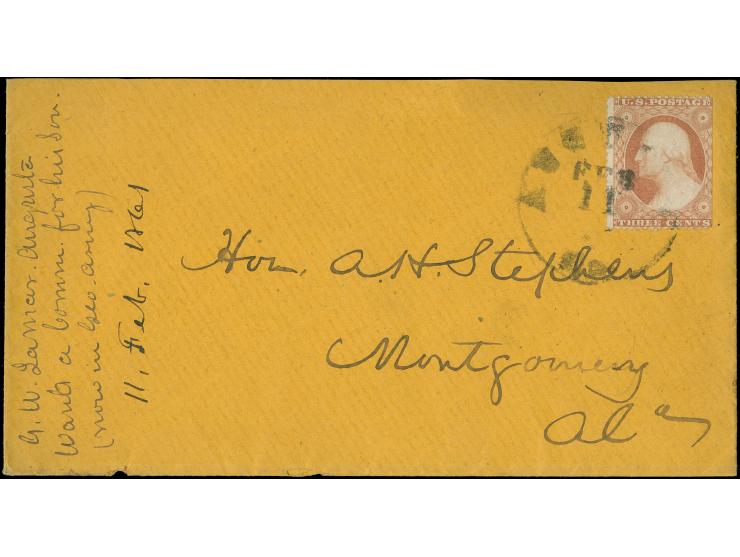 U.S. POSTAGE
THREE CENTS
FEB
11
Hon. A. H. Stephens
Montgomery
Ala
G. W. Lamar. Augusta
Wants a Comm. for his son.
(now in Geo. army)
11. Feb. 1861